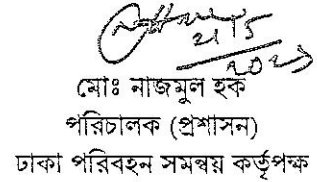 মোঃ নাজমুল হক
পরিচালক (প্রশাসন)
ঢাকা পরিবহন সমন্বয় কর্তৃপক্ষ